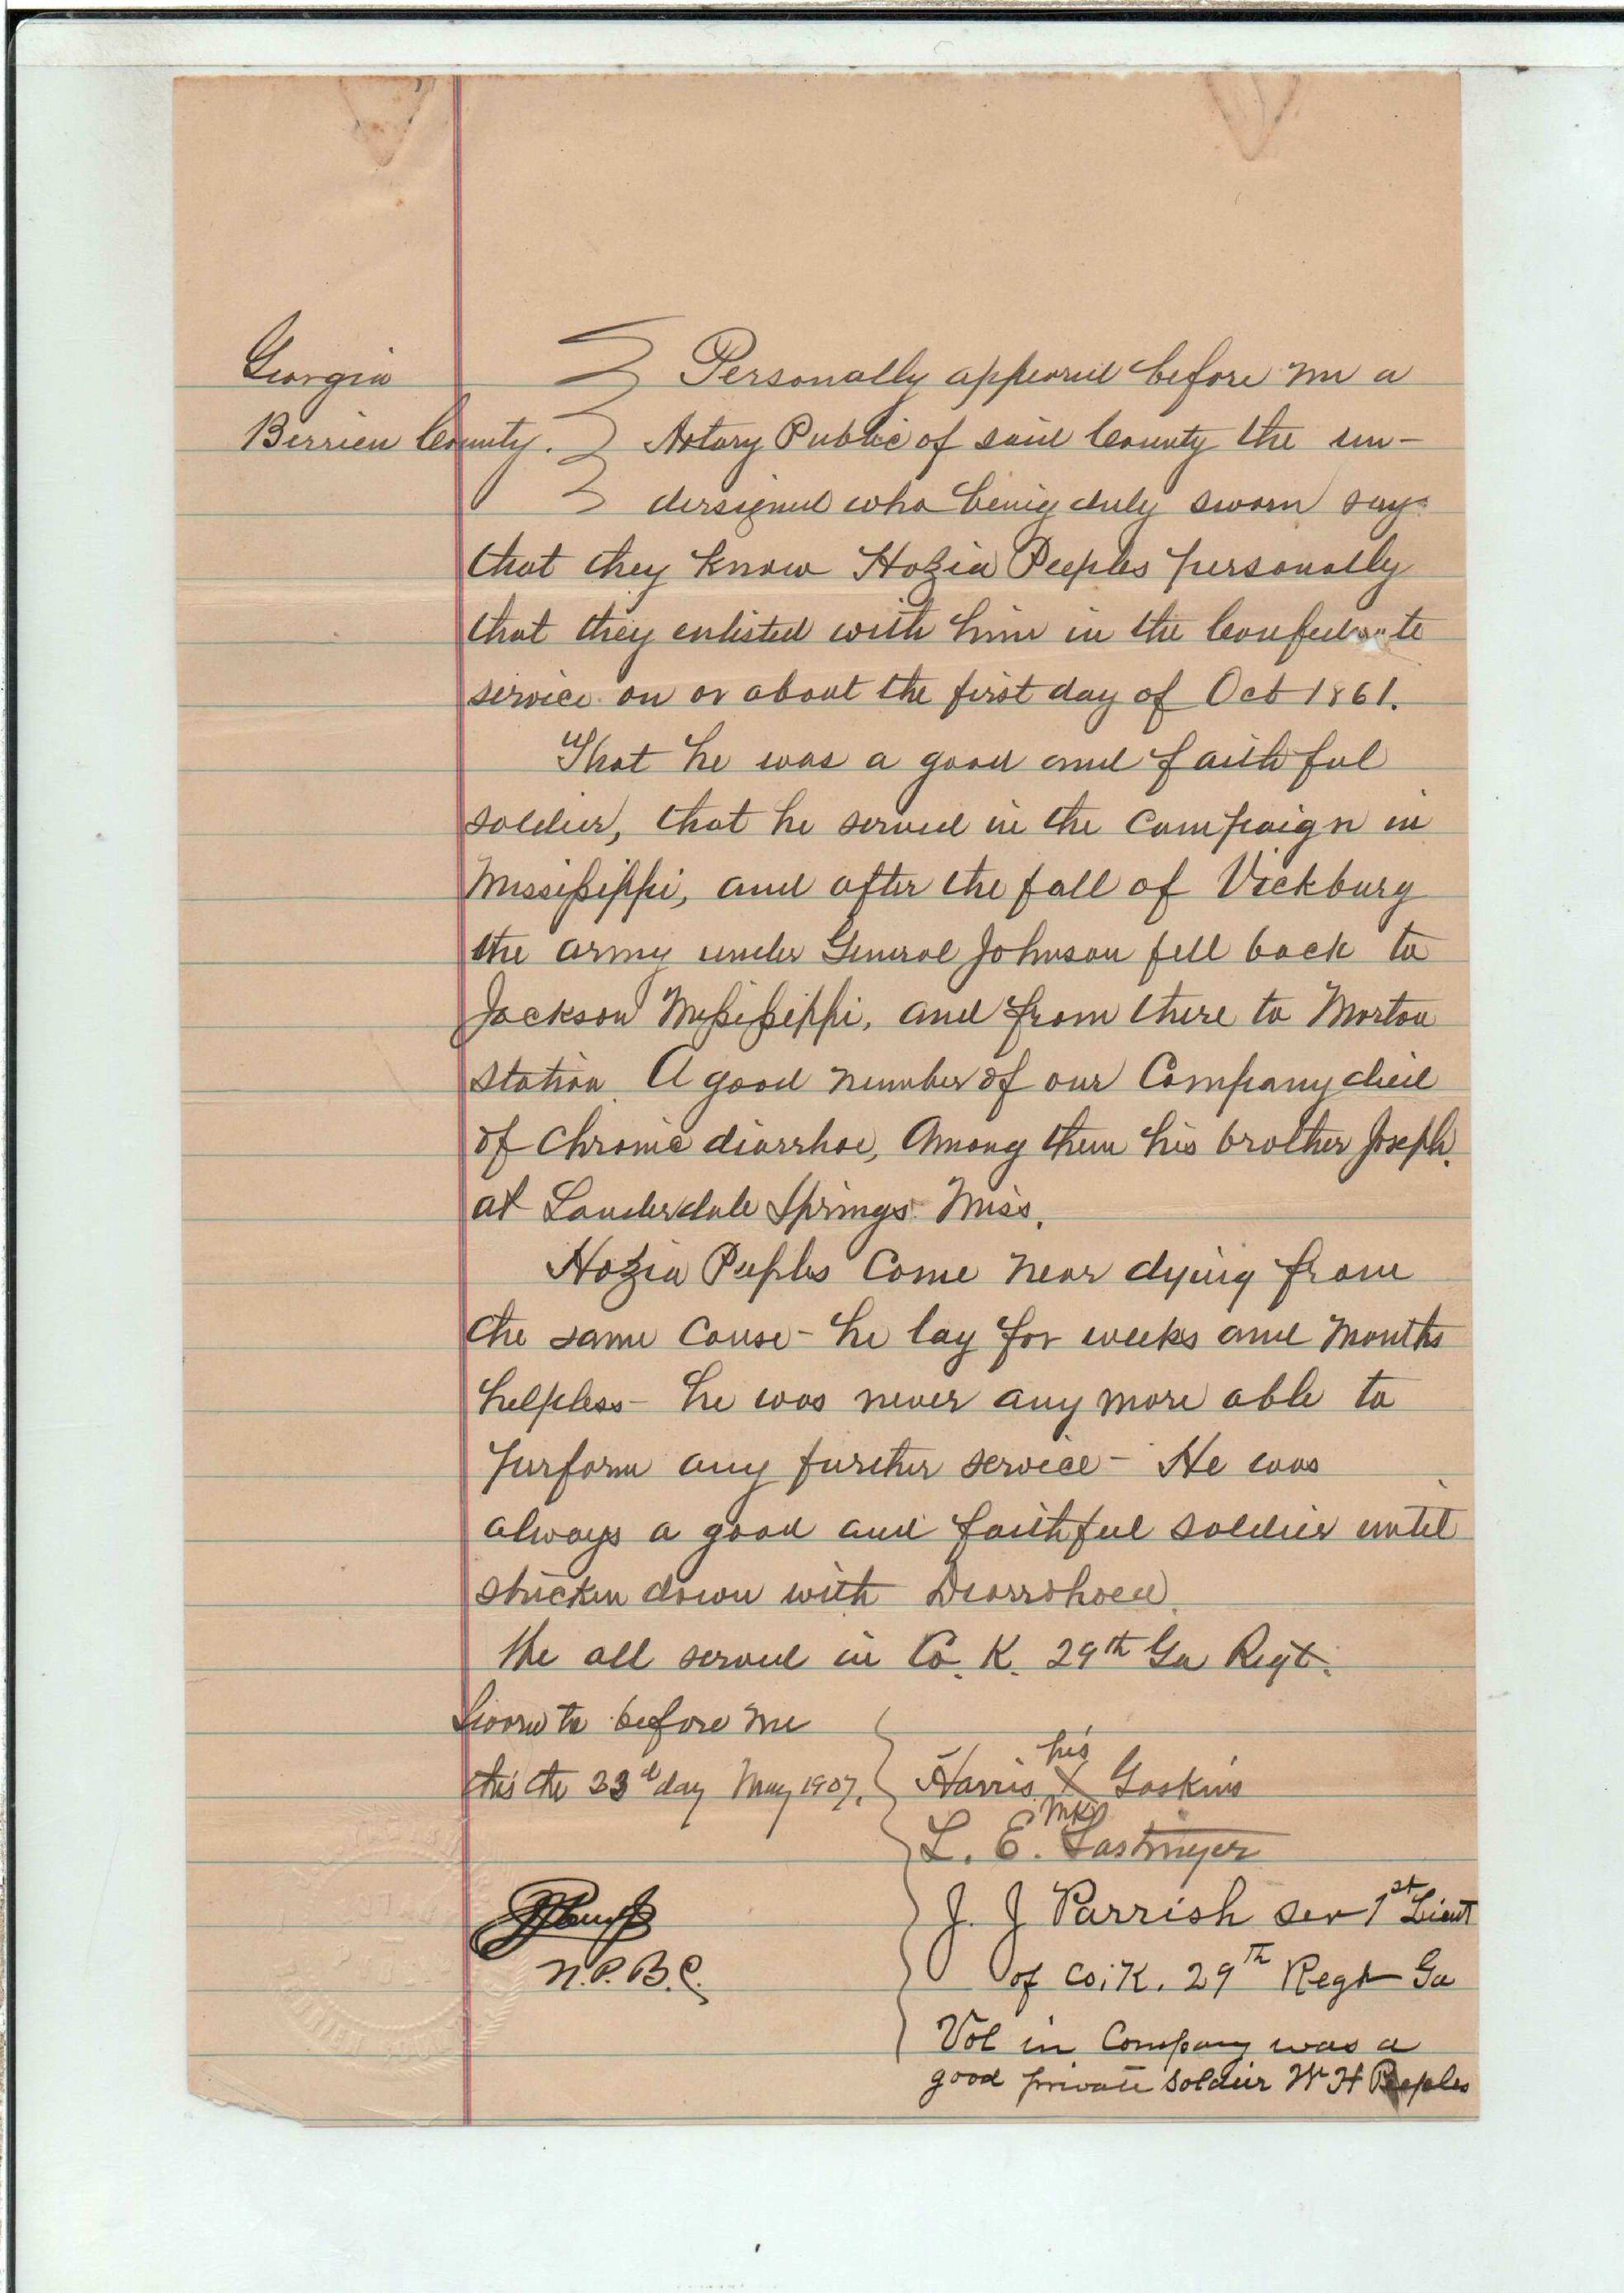 Georgia } Personally appeared before me a
Berrien County. } Notary Public of said County the un-
dersigned who being duly sworn say
that they know Hozia Peeples personally
that they enlisted with him in the Confederate
service on or about the first day of Oct 1861.
That he was a good and faithful
soldier, that he served in the campaign in
Missisippi, and after the fall of Vickburg
the army under General Johnson fell back to
Jackson Missisippi, and from there to Morton
Station. A good number of our Company died
of Chronic diarrhoe, Among them his brother Joseph.
at Lauderdale Springs Miss.
Hozia Peeples Come near dying from
the same Cause - he lay for weeks and months
helpless - he was never any more able to
perform any further service - He was
always a good and faithful soldier until
stricken down with Diarrohoea.
We all served in Co. K. 29th Ga Regt.
Sworn to before me
this the 23d day May 1907.
his
Harris X Gaskins
mk
L. E. Lastinger
J. J Parrish ser 1st Lieut
N.P.B.C.
of Co; K. 29th Regt Ga
Vol in Company was a
good private Soldier W H Peeples